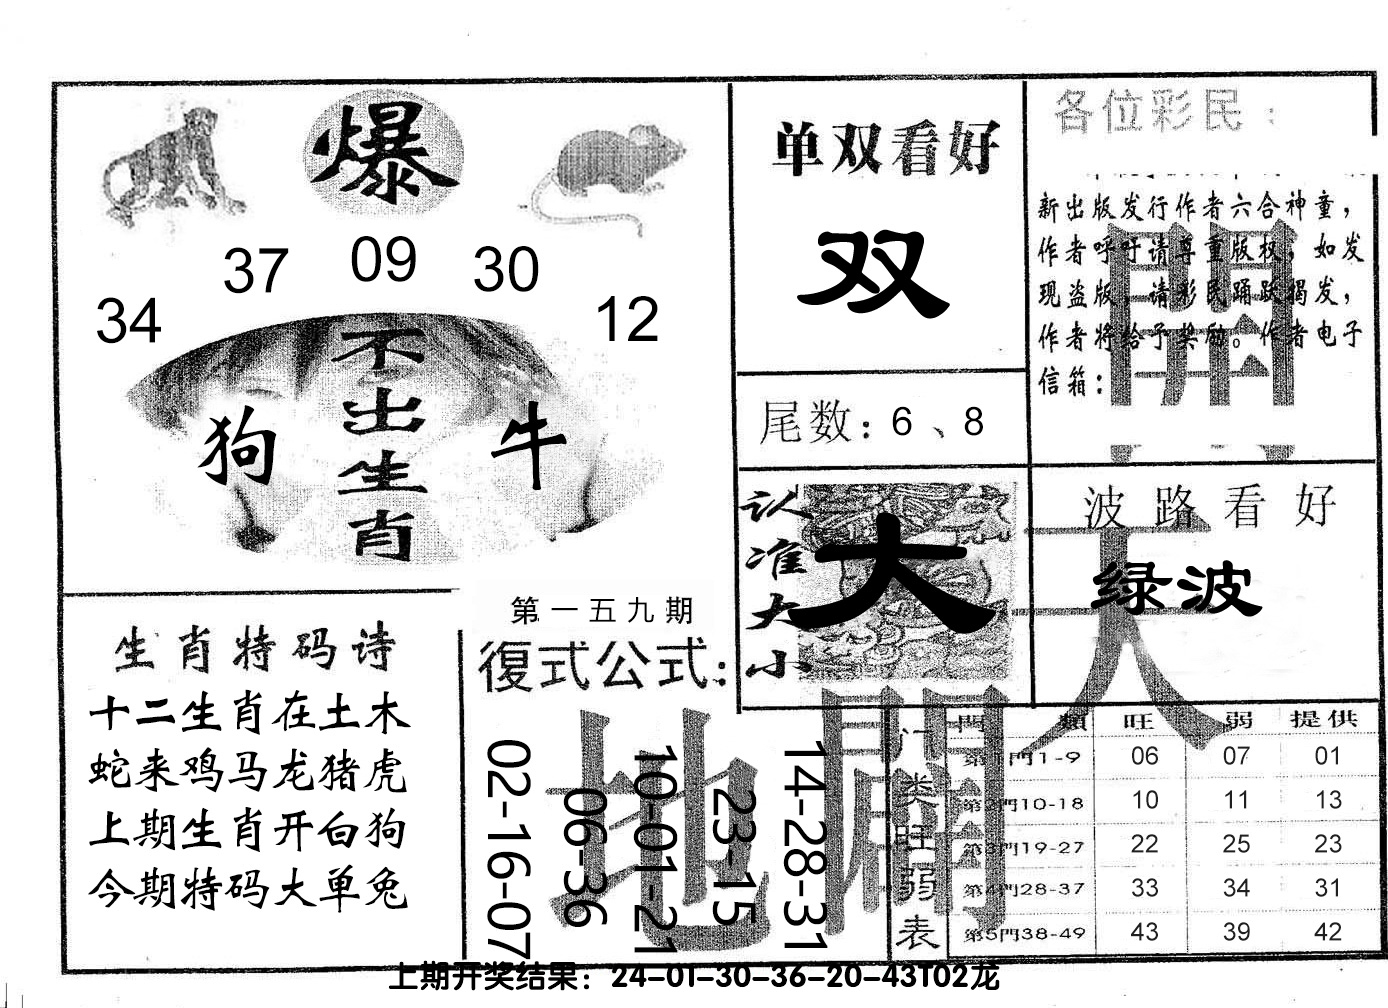 爆
34 37 09 30 12
不出生肖
狗 牛
单双看好
双
尾数：6、8
各位彩民：
新出版发行作者六合神童，
作者呼吁请尊重版权，如发
现盗版，请彩民踊跃揭发，
作者将给予奖励。作者电子
信箱：
认准大小
大
波路看好
绿波
生肖特码诗
十二生肖在土木
蛇来鸡马龙猪虎
上期生肖开白狗
今期特码大单兔
第一五九期
復式公式：
02-16-07
06-36
10-01-21
23-15
14-28-31
天
地
門类旺弱表
門類 旺 弱 提供
第1門1-9 06 07 01
第2門10-18 10 11 13
第3門19-27 22 25 23
第4門28-37 33 34 31
第5門38-49 43 39 42
上期开奖结果：24-01-30-36-20-43T02龙